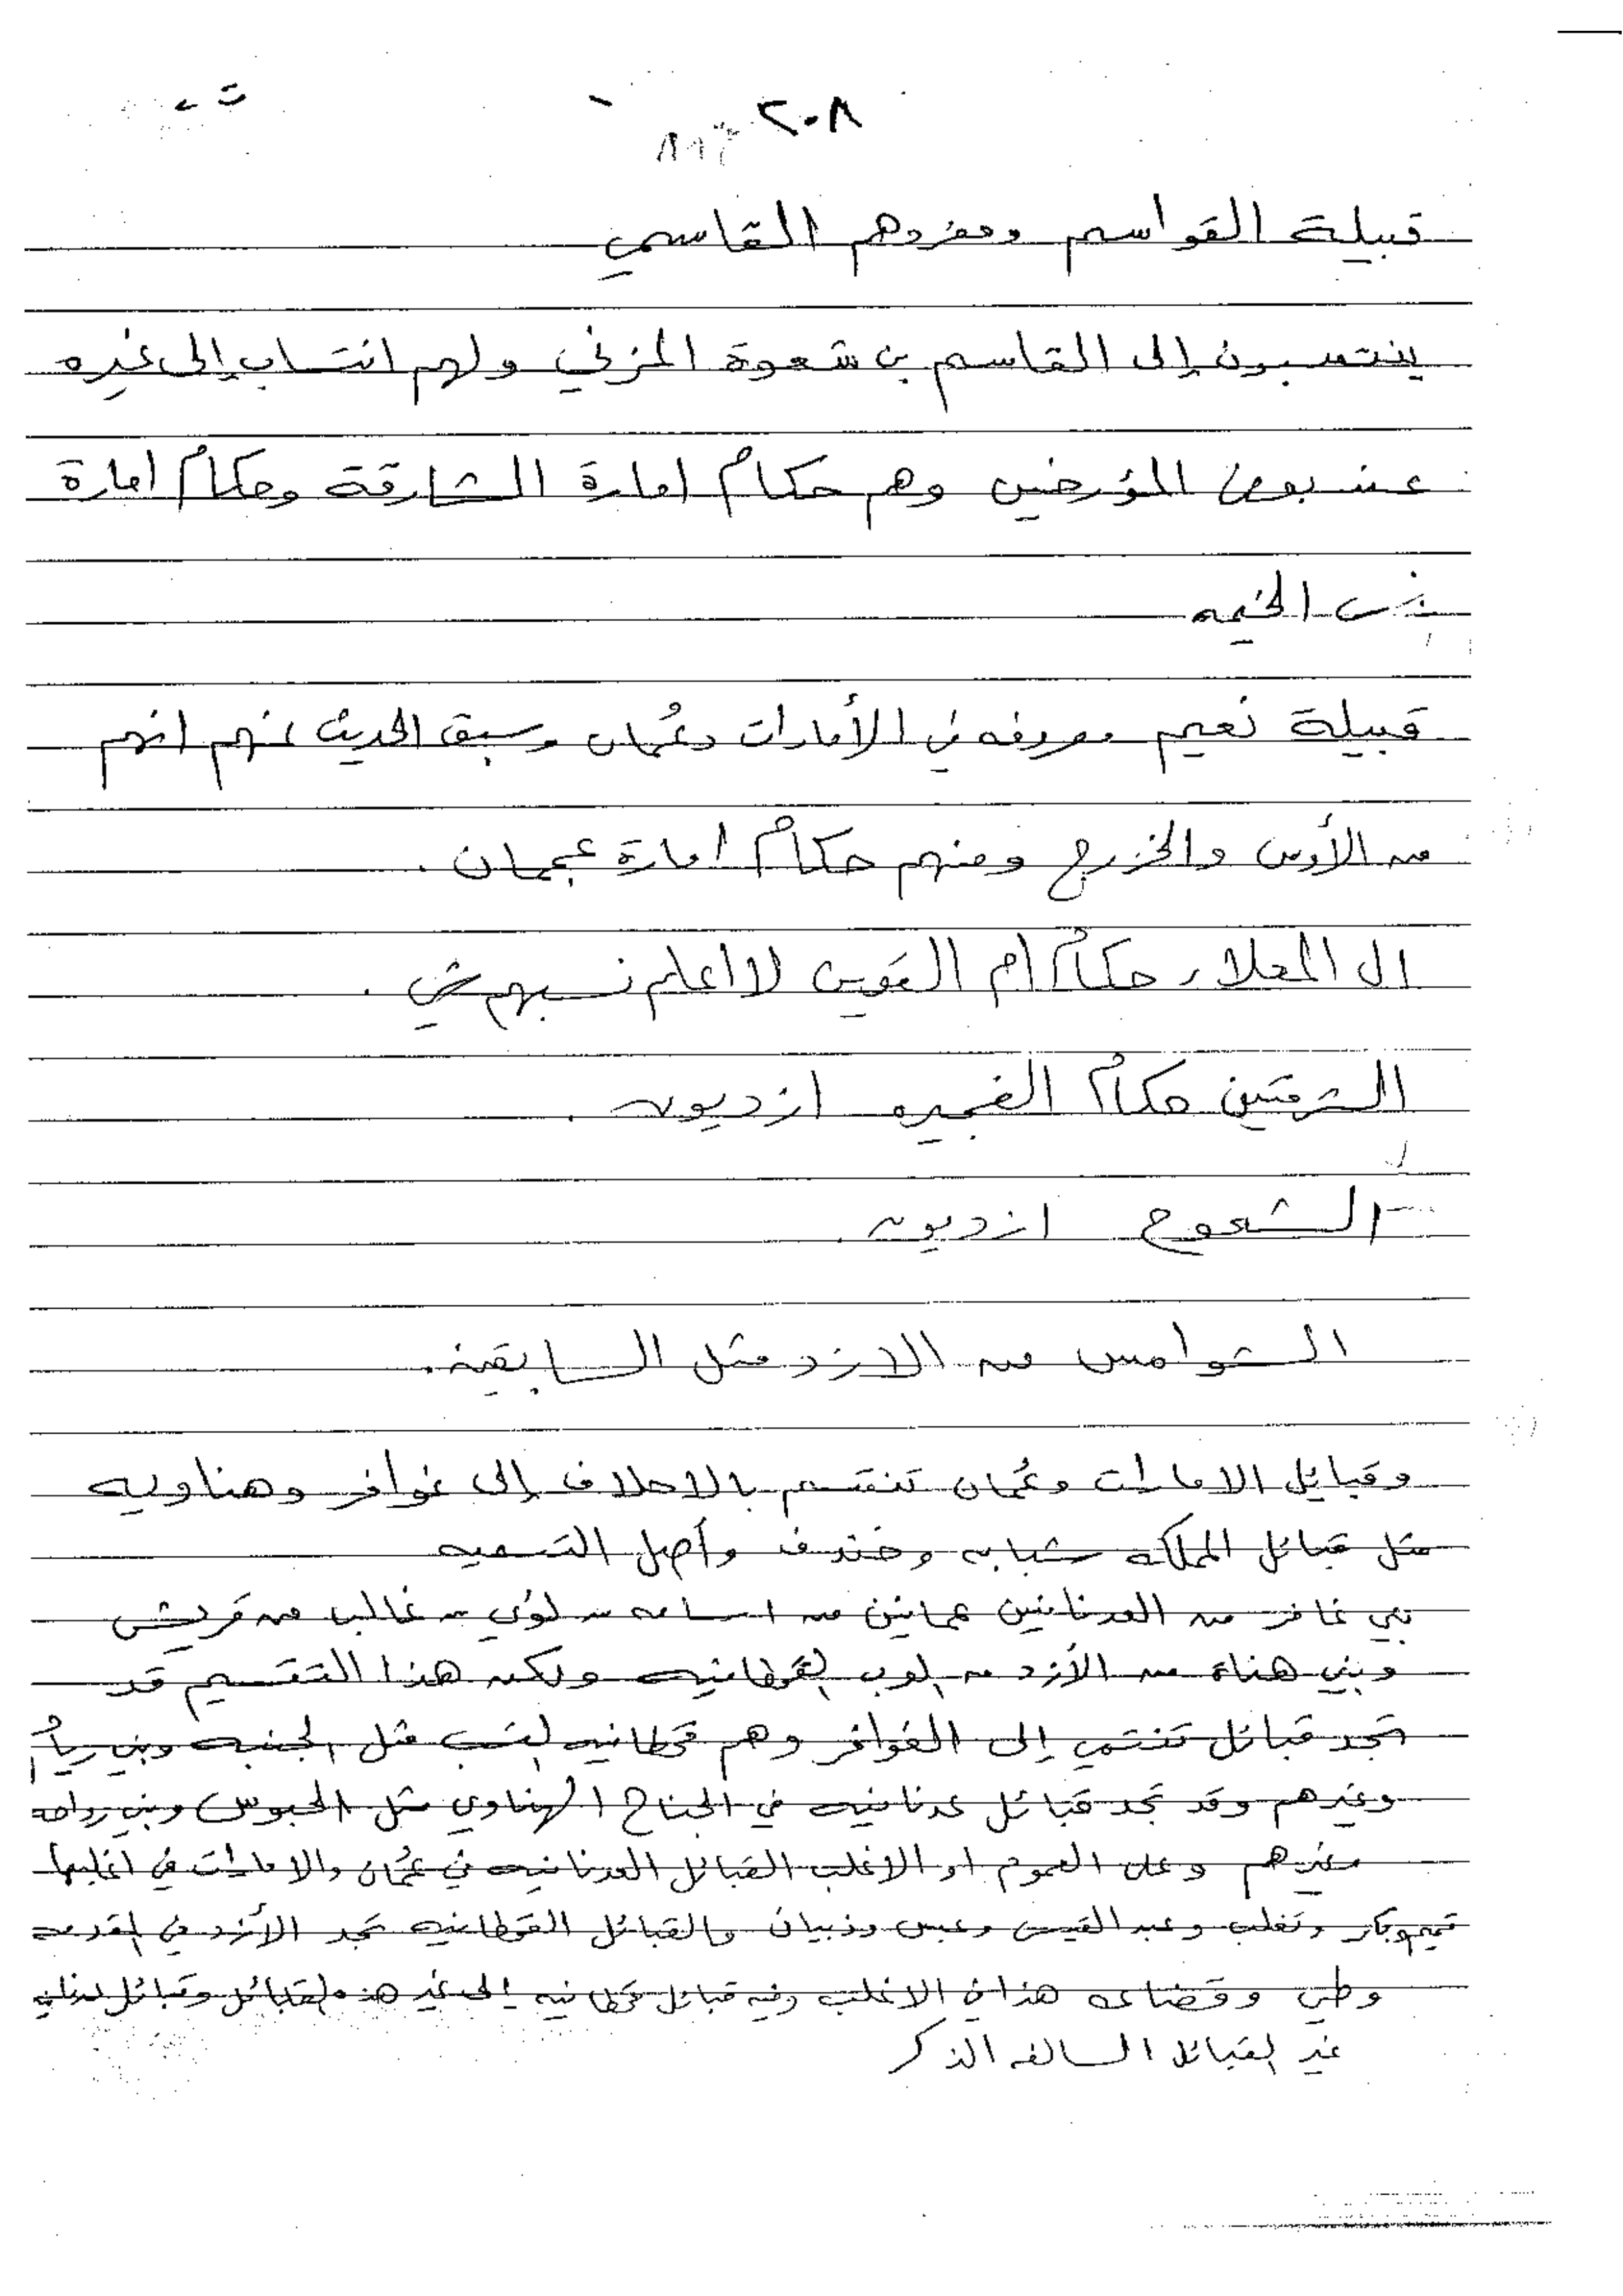 ٢٠٨
قبيلة القواسم ومفردهم القاسمي
ينتسبون إلى القاسم بن شعوة المزني ولهم انتساب إلى غيره
عند بعض المؤرخين وهم حكام امارة الشارقة وحكام امارة
الخيمه
قبيلة نعيم معروفه في الأمارات وعُمان وسبق الحديث عنهم انهم
من الأوس والخزرج ومنهم حكام امارة عجمان .
ال المعلا حكام ام القوين لا اعلم نسبهم
الشرقيين حكام الفجيره ازديون .
الشحوح ازديون .
الشوامس من الازد مثل السابقين .
وقبايل الامارات وعُمان تنقسم بالاحلاف إلى غوافر وهناويه
مثل قبائل المملكه شبابه وخندف وأصل التسميه
بني غافر من العدنانيين عمانين من اسامه بن لؤي بن غالب من قريش
وبني هناة من الأزد من العرب القحطانيه ولكن هذا التقسيم قد
تجد قبائل تنتمي إلى الغوافر وهم قحطانيه النسب مثل الجنبه وبني ريام
وغيرهم وقد تجد قبائل عدنانيه في الجناح الهناوي مثل الحبوس وبني رواحه
وغيرهم وعلى العموم او الاغلب القبائل العدنانيه في عُمان والامارات في اغلبها
تميم وبكر وتغلب وعبد القيس وعبس وذبيان والقبائل القحطانيه تجد الأزد في
وطي وقضاعه هذا في الاغلب وفيه قبائل قحطانيه إلى غير هذه القبائل وقبائل عدنانيه
غير القبائل السالفه الذكر